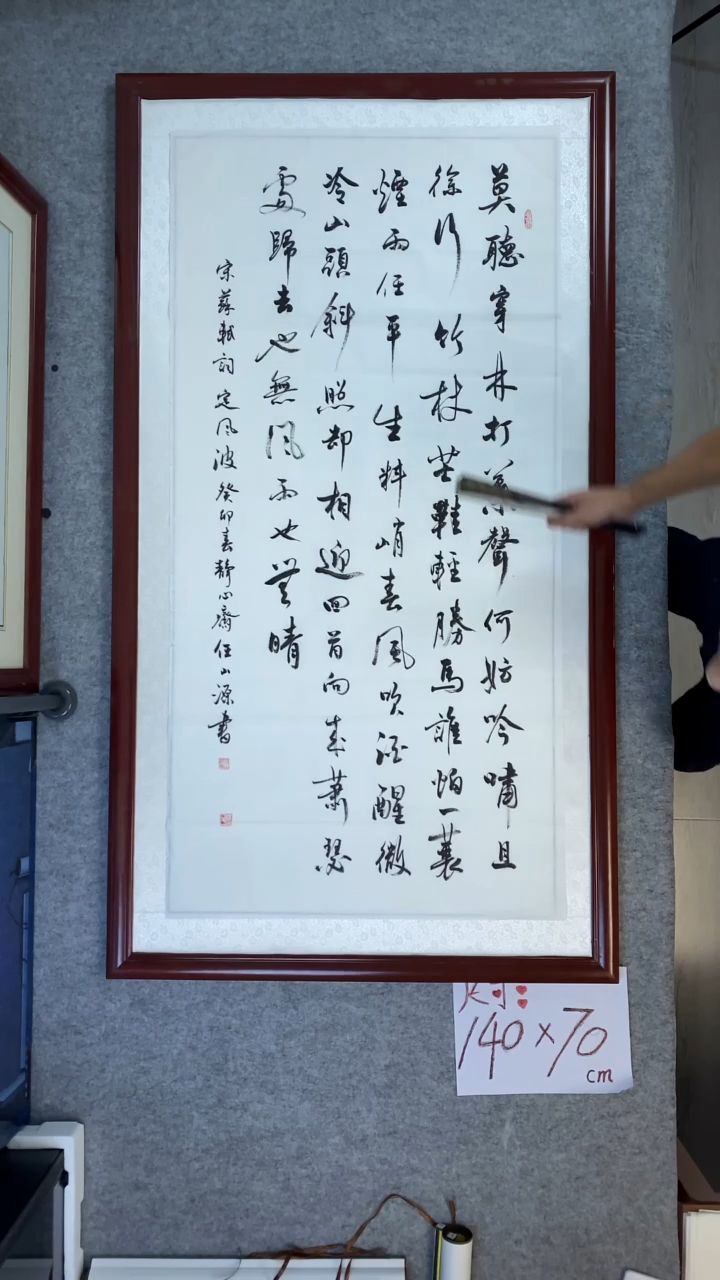 莫聽穿林打葉聲何妨吟嘯且
徐行竹杖芒鞋輕勝馬誰怕一蓑
煙雨任平生料峭春風吹酒醒微
冷山頭斜照却相迎回首向来蕭瑟
處歸去也無風雨也無晴
宋蘇軾詞定風波癸卯春靜心齋任山源書
尺寸:
140×70
cm